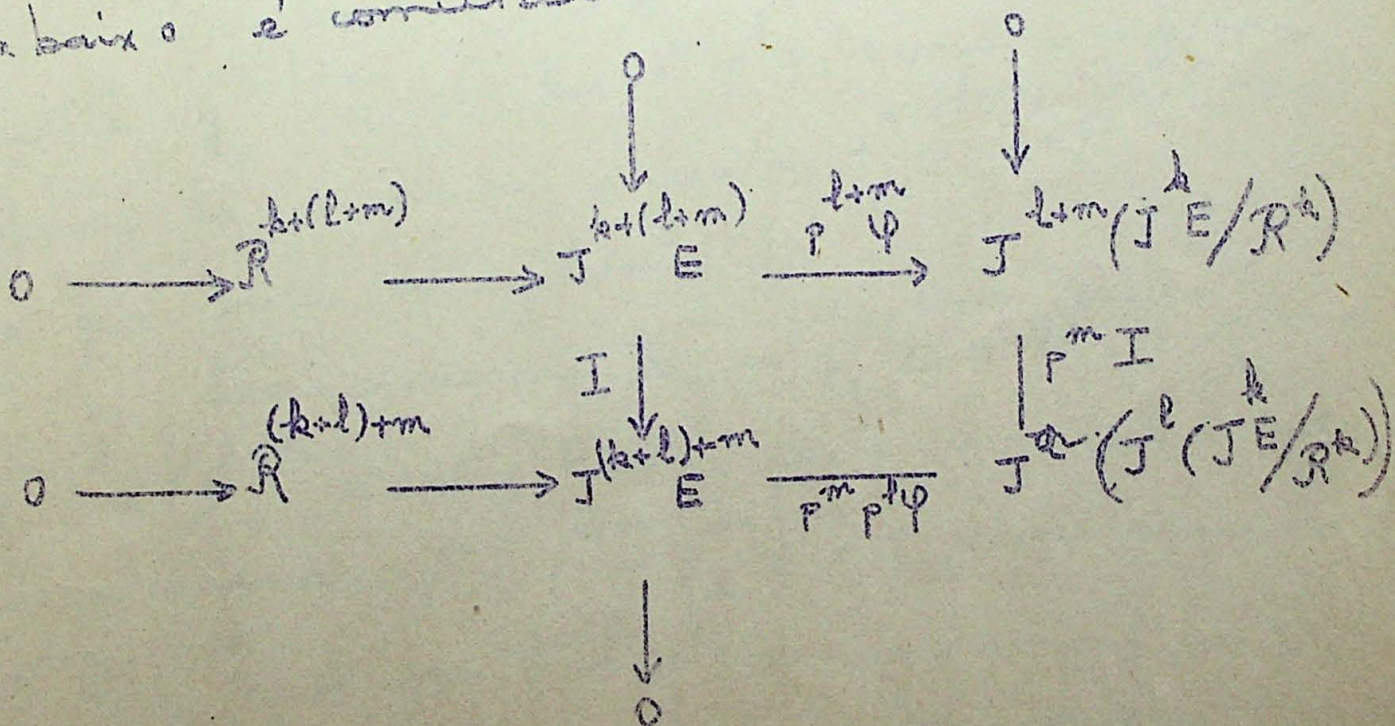 baixo é
0
0
0 ⟶ R^{k+(l+m)} ⟶ J^{k+(l+m)} E ⟶ p^{l+m} φ J^{l+m}(J^k E/R^k)
I p^m I
0 ⟶ R^{(k+l)+m} ⟶ J^{(k+l)+m} E p^m p^l φ J^m (J^l (J^k E/R^k))
0